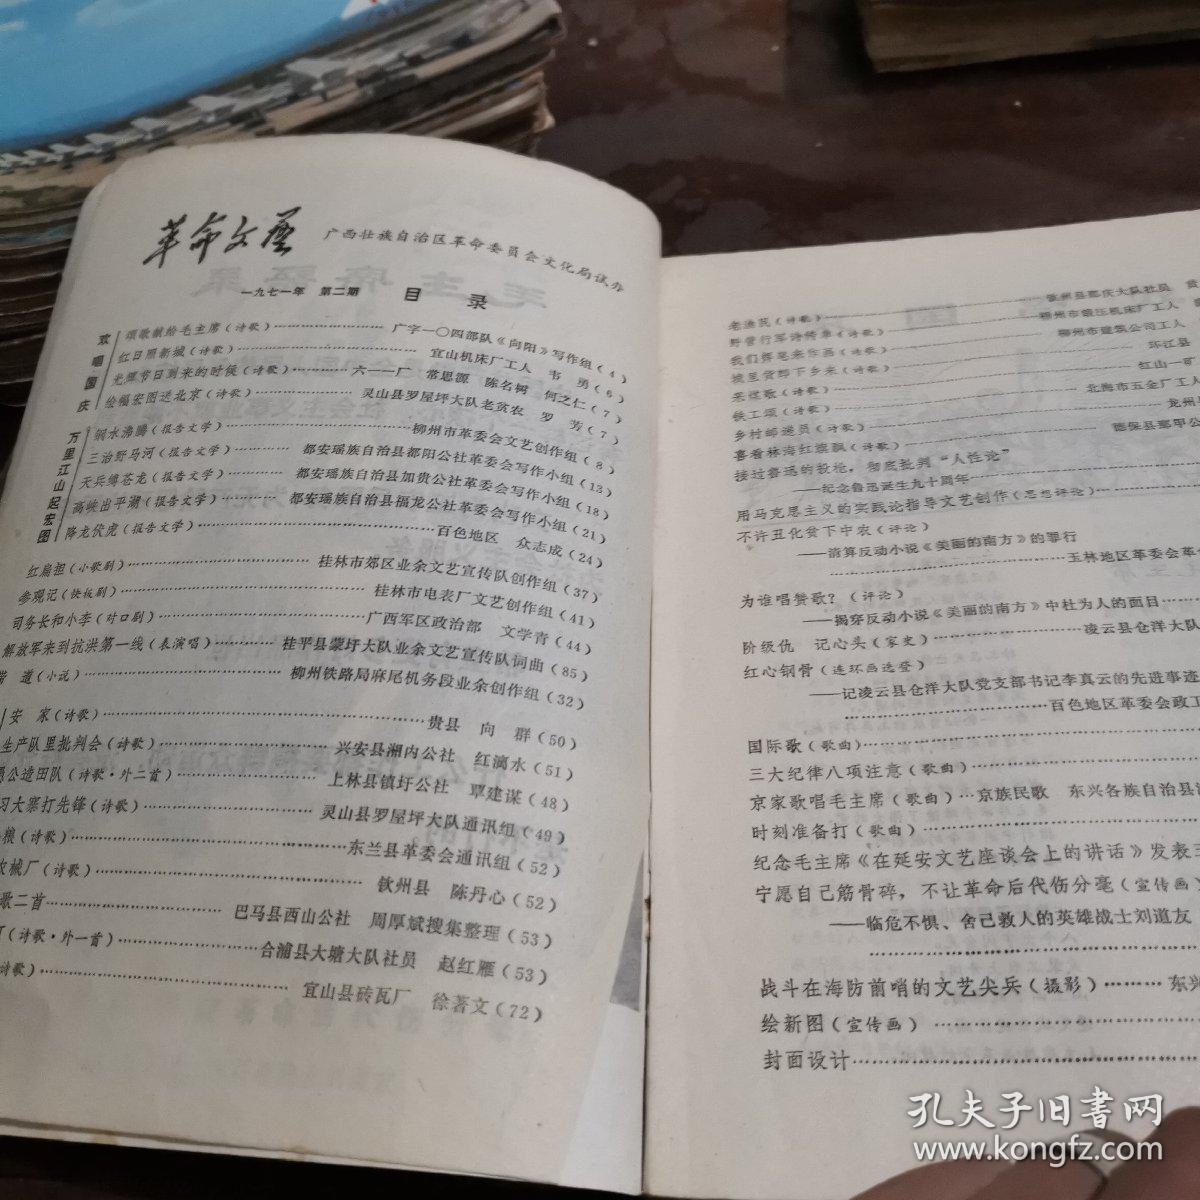 革命文艺
广西壮族自治区革命委员会文化局试办
一九七一年 第二期 目录
欢唱国庆
颂歌献给毛主席(诗歌)……广字一〇四部队《向阳》写作组(4)
红日照新城(诗歌)……宜山机床厂工人 韦 勇(6)
光辉节日到来的时候(诗歌)……六一一厂 常思源 陈名树 何之仁(7)
绘幅宏图送北京(诗歌)……灵山县罗屋坪大队老贫农 罗 芳(7)
万里江山起宏图
钢水沸腾(报告文学)……柳州市革委会文艺创作组(8)
三治野马河(报告文学)……都安瑶族自治县都阳公社革委会写作小组(13)
天兵缚苍龙(报告文学)……都安瑶族自治县加贵公社革委会写作小组(18)
高峡出平湖(报告文学)……都安瑶族自治县福龙公社革委会写作小组(21)
降龙伏虎(报告文学)……百色地区 众志成(24)
红扁担(小歌剧)……桂林市郊区业余文艺宣传队创作组(37)
参观记(快板剧)……桂林市电表厂文艺创作组(41)
司务长和小李(对口剧)……广西军区政治部 文学青(44)
解放军来到抗洪第一线(表演唱)……桂平县蒙圩大队业余文艺宣传队词曲(85)
道(小说)……柳州铁路局麻尾机务段业余创作组(32)
安 家(诗歌)……贵县 向 群(50)
生产队里批判会(诗歌)……兴安县湘内公社 红滴水(51)
愚公造田队(诗歌·外二首)……上林县镇圩公社 覃建谋(48)
习大寨打先锋(诗歌)……灵山县罗屋坪大队通讯组(49)
粮(诗歌)……东兰县革委会通讯组(52)
农械厂(诗歌)……钦州县 陈丹心(52)
歌二首……巴马县西山公社 周厚斌搜集整理(53)
(诗歌·外一首)……合浦县大塘大队社员 赵红雁(53)
诗歌)……宜山县砖瓦厂 徐著文(72)
老渔民(诗歌)……钦州县那庆大队社员 黄
野营行军诗传单(诗歌)……柳州市锻压机床厂工人
我们挥笔来作画(诗歌)……柳州市建筑公司工人
披星赏脚下乡来(诗歌)……环江县
采煤歌(诗歌)……红山一矿
铁工颂(诗歌)……北海市五金厂工人
乡村邮递员(诗歌)……龙州县
喜看林海红旗飘(诗歌)……德保县那甲公
接过鲁迅的投枪,彻底批判“人性论”
——纪念鲁迅诞生九十周年……
用马克思主义的实践论指导文艺创作(思想评论)……
不许丑化贫下中农(评论)
——清算反动小说《美丽的南方》的罪行
……玉林地区革委会革
为谁唱赞歌?(评论)
——揭穿反动小说《美丽的南方》中杜为人的面目……
阶级仇 记心头(家史)……凌云县仓洋大队
红心钢骨(连环画选登)
——记凌云县仓洋大队党支部书记李真云的先进事迹
……百色地区革委会政工
国际歌(歌曲)……
三大纪律八项注意(歌曲)……
京家歌唱毛主席(歌曲)…京族民歌 东兴各族自治县
时刻准备打(歌曲)……
纪念毛主席《在延安文艺座谈会上的讲话》发表
宁愿自己筋骨碎,不让革命后代伤分毫(宣传画)
——临危不惧、舍己救人的英雄战士刘道友
……
战斗在海防前哨的文艺尖兵(摄影)………东兴
绘新图(宣传画)……
封面设计……
孔夫子旧书网
www.kongfz.com